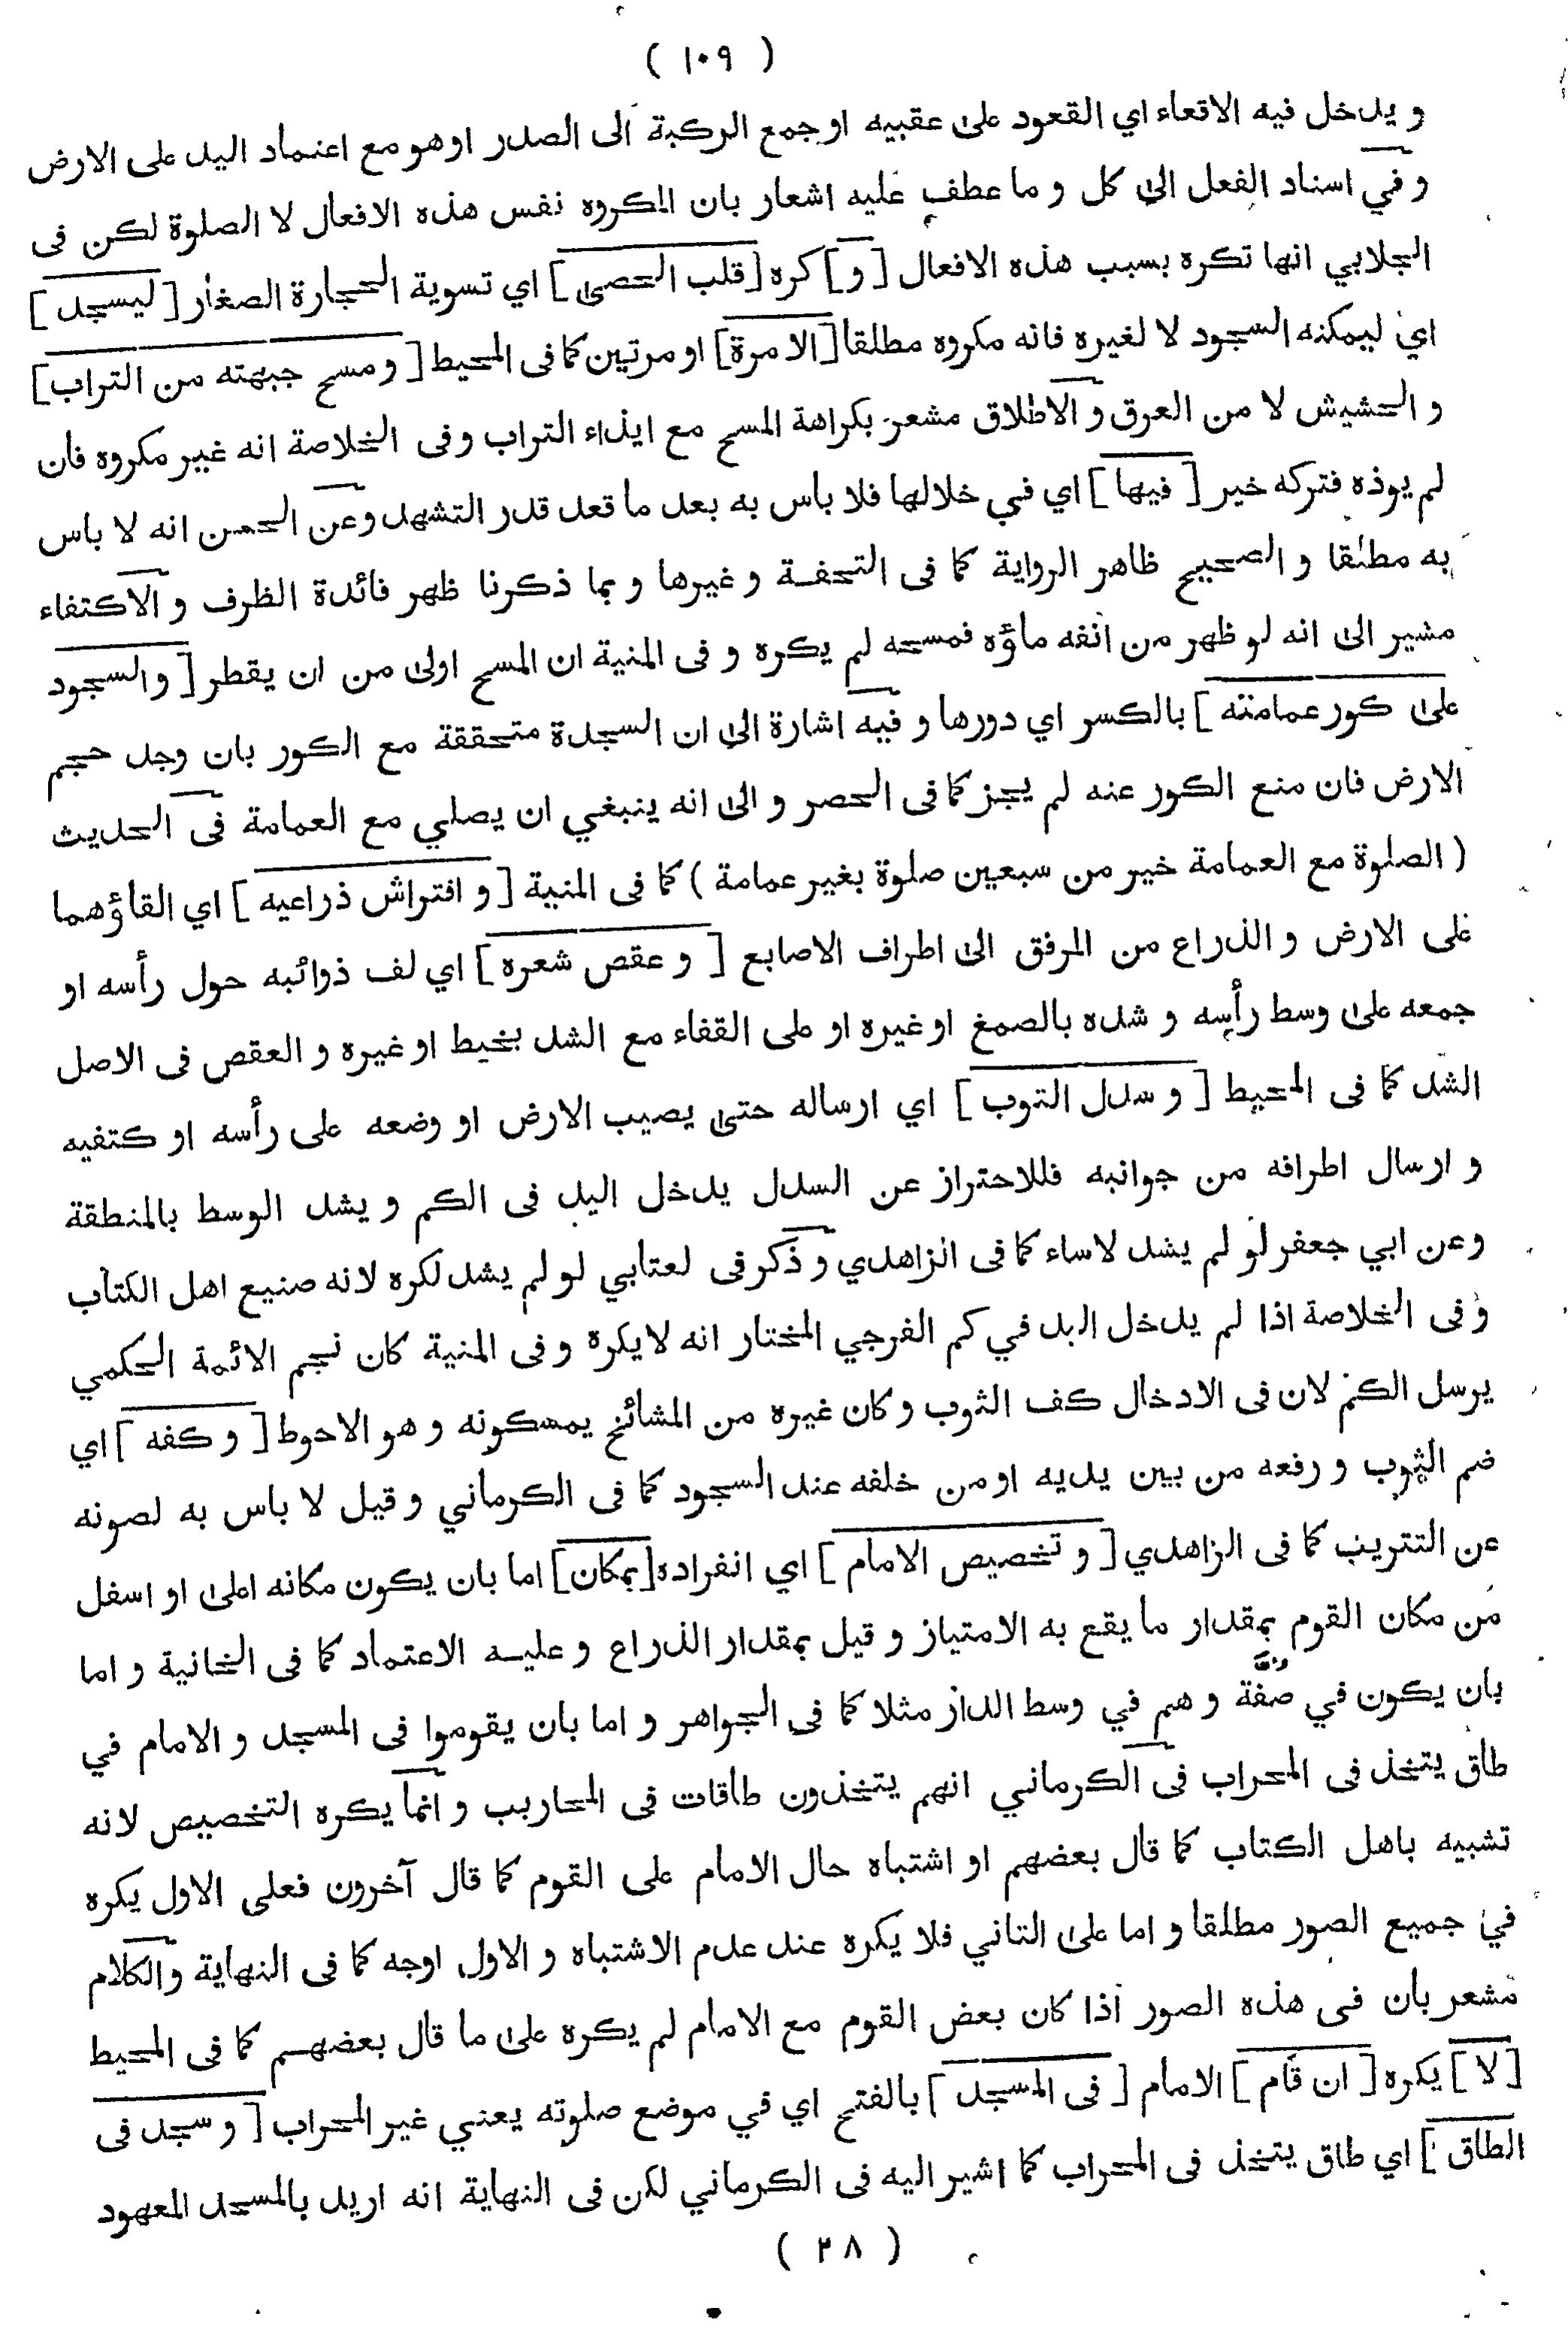 ( ١٠٩ )
و يدخل فيه الاقعاء اي القعود على عقبيه او جمع الركبة الى الصدر او هو مع اعتماد اليد على الارض
و في اسناد الفعل الى كل و ما عطف عليه اشعار بان المكروه نفس هذه الافعال لا الصلوة لكن فى
الجلابي انها تكره بسبب هذه الافعال [ و ] كره [ قلب الحصى ] اي تسوية الحجارة الصغار [ ليسجد ]
اي ليمكنه السجود لا لغيره فانه مكروه مطلقا [ الا مرة ] او مرتين كما فى المحيط [ و مسح جبهته من التراب ]
و الحشيش لا من العرق و الاطلاق مشعر بكراهة المسح مع ايذاء التراب وفى الخلاصة انه غير مكروه فان
لم يوذه فتركه خير [ فيها ] اي في خلالها فلا باس به بعد ما قعد قدر التشهد وعن الحسن انه لا باس
به مطلقا و الصحيح ظاهر الرواية كما فى التحفة و غيرها و بما ذكرنا ظهر فائدة الظرف و الاكتفاء
مشير الى انه لو ظهر من انفه ماؤه فمسحه لم يكره و فى المنية ان المسح اولى من ان يقطر [ و السجود
على كور عمامته ] بالكسر اي دورها و فيه اشارة الى ان السجدة متحققة مع الكور بان وجد حجم
الارض فان منع الكور عنه لم يجز كما فى الحصر و الى انه ينبغي ان يصلي مع العمامة فى الحديث
( الصلوة مع العمامة خير من سبعين صلوة بغير عمامة ) كما فى المنية [ و افتراش ذراعيه ] اي القاؤهما
على الارض و الذراع من المرفق الى اطراف الاصابع [ و عقص شعره ] اي لف ذوائبه حول رأسه او
جمعه على وسط رأسه و شده بالصمغ او غيره او على القفاء مع الشد بخيط او غيره و العقص فى الاصل
الشد كما فى المحيط [ و سدل الثوب ] اي ارساله حتى يصيب الارض او وضعه على رأسه او كتفيه
و ارسال اطرافه من جوانبه فللاحتراز عن السدل يدخل اليد فى الكم و يشد الوسط بالمنطقة
وعن ابي جعفر لو لم يشد لاساء كما فى الزاهدي و ذكر فى لعتابي لو لم يشد لكره لانه صنيع اهل الكتاب
وفى الخلاصة اذا لم يدخل اليد في كم الفرجي المختار انه لا يكره وفى المنية كان نجم الائمة الحكمي
يرسل الكم لان فى الادخال كف الثوب وكان غيره من المشائخ يمسكونه و هو الاحوط [ و كفه ] اي
ضم الثوب و رفعه من بين يديه او من خلفه عند السجود كما فى الكرماني و قيل لا باس به لصونه
عن التتريب كما فى الزاهدي [ و تخصيص الامام ] اي انفراده [ بمكان ] اما بان يكون مكانه اعلى او اسفل
من مكان القوم بمقدار ما يقع به الامتياز و قيل بمقدار الذراع و عليه الاعتماد كما فى الخانية و اما
بان يكون في صُفَّة و هم في وسط الدار مثلا كما فى الجواهر و اما بان يقوموا فى المسجد و الامام في
طاق يتخذ فى المحراب فى الكرماني انهم يتخذون طاقات فى المحاريب و انما يكره التخصيص لانه
تشبيه باهل الكتاب كما قال بعضهم او اشتباه حال الامام على القوم كما قال آخرون فعلى الاول يكره
في جميع الصور مطلقا و اما على الثاني فلا يكره عند عدم الاشتباه و الاول اوجه كما فى النهاية والكلام
مشعر بان فى هذه الصور اذا كان بعض القوم مع الامام لم يكره على ما قال بعضهم كما فى المحيط
[ لا ] يكره [ ان قام ] الامام [ فى المسجد ] بالفتح اي في موضع صلوته يعني غير المحراب [ و سجد فى
الطاق ] اي طاق يتخذ فى المحراب كما اشير اليه فى الكرماني لكن فى النهاية انه اريد بالمسجد المعهود
( ٢٨ )